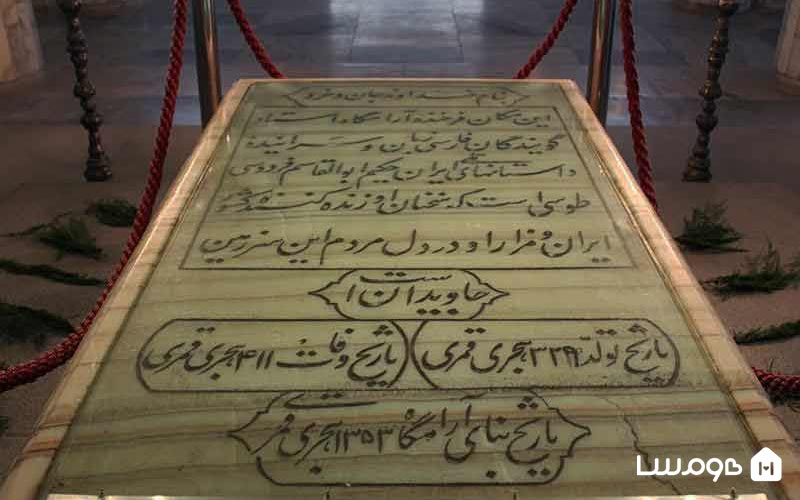 بنام خداوند جان و خرد
این مکان فرخنده آرامگاه استاد
گویندگان فارسی زبان و سراینده
داستانهای ملی ایران حکیم ابوالقاسم فردوسی
طوسی است که سخنان او زنده کننده کشور
ایران و مزار او در دل مردم این سرزمین
جاویدان است
تاریخ تولد ۳۲۹ هجری قمری
تاریخ وفات ۴۱۱ هجری قمری
تاریخ بنای آرامگاه ۱۳۵۳ هجری قمری
هومسا